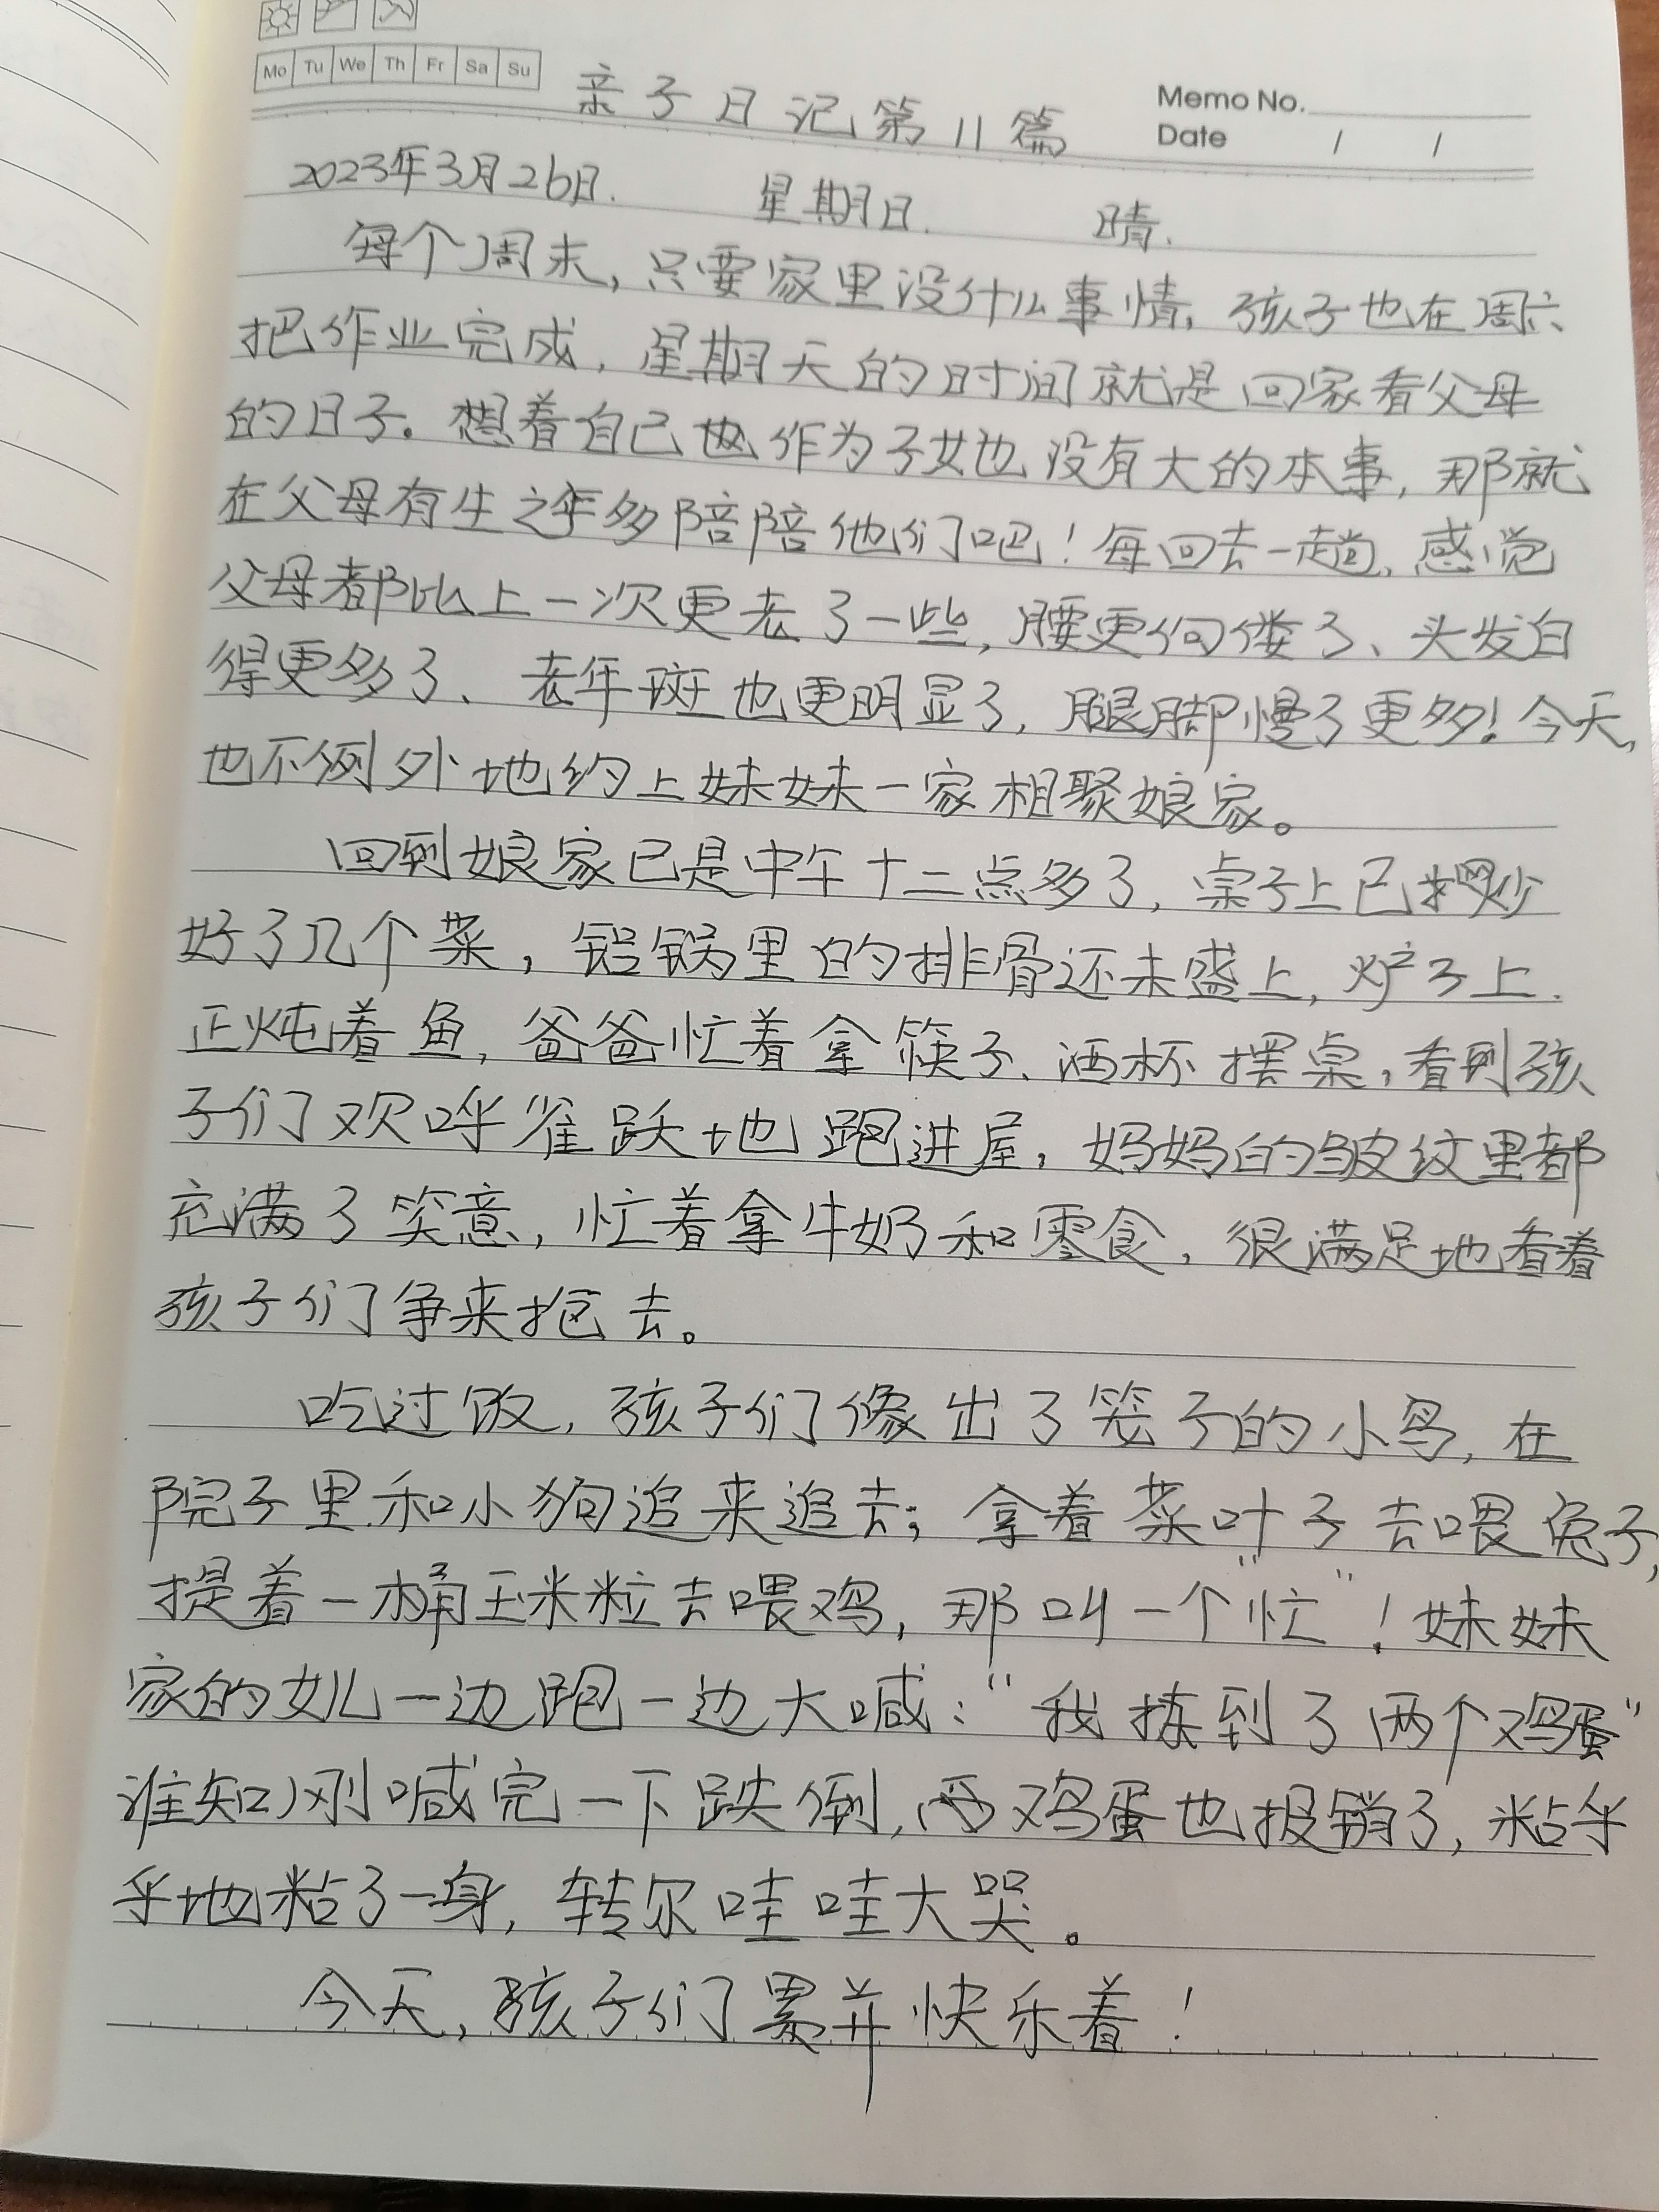 Mo Tu We Th Fr Sa Su
亲子日记第11篇
Memo No.
Date / /
2023年3月26日. 星期日. 晴.
每个周末,只要家里没什么事情,孩子也在周六
把作业完成,星期天的时间就是回家看父母
的日子。想着自己也作为子女也没有大的本事,那就
在父母有生之年多陪陪他们吧!每回去一趟,感觉
父母都比上一次更老了一些,腰更佝偻了、头发白
得更多了、老年斑也更明显了,腿脚慢了更多!今天,
也不例外地约上妹妹一家相聚娘家。
回到娘家已是中午十二点多了,桌子上已炒
好了几个菜,铝锅里的排骨还未盛上,炉子上
正炖着鱼,爸爸忙着拿筷子、酒杯摆桌,看到孩
子们欢呼雀跃地跑进屋,妈妈的皱纹里都
充满了笑意,忙着拿牛奶和零食,很满足地看着
孩子们争来抢去。
吃过饭,孩子们像出了笼子的小鸟,在
院子里和小狗追来追去;拿着菜叶子去喂兔子,
提着一桶玉米粒去喂鸡,那叫一个“忙”!妹妹
家的女儿一边跑一边大喊:“我拣到了两个鸡蛋”
谁知刚喊完一下跌倒,两鸡蛋也报销了,粘乎
乎地粘了一身,转尔哇哇大哭。
今天,孩子们累并快乐着!